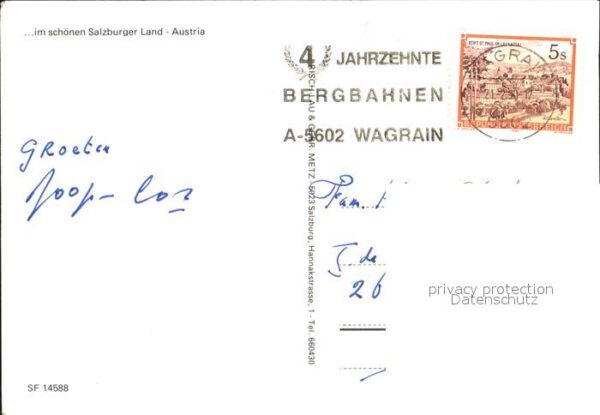 ...im schönen Salzburger Land - Austria
4 JAHRZEHNTE
BERGBAHNEN
A-5602 WAGRAIN
5s
REPUBLIK ÖSTERREICH
Groeten
Joop - Coz
Fam.
26
METZ · 5023 Salzburg, Hannakstrasse, 1 - Tel. 660430
privacy protection
Datenschutz
SF 14588